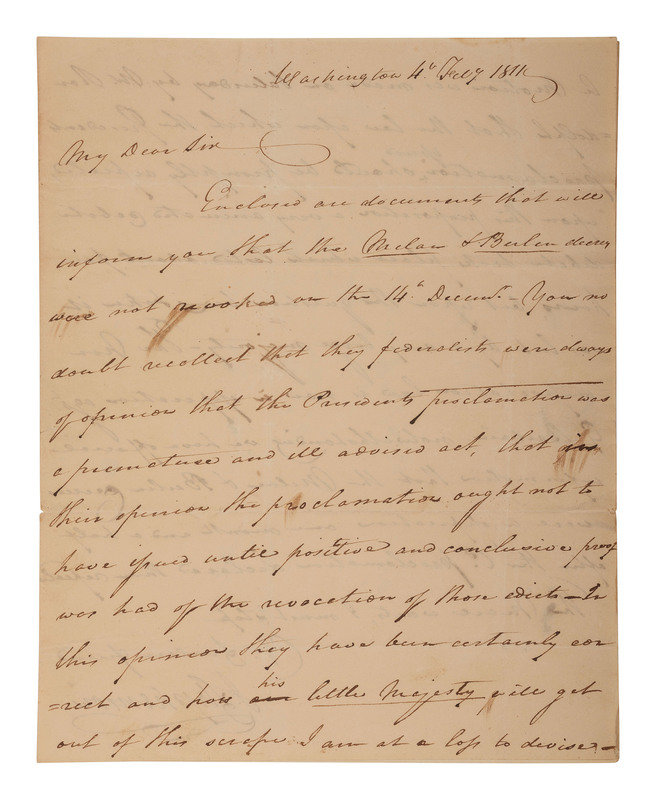 Washington 4th Feby 1811
My Dear Sir
Enclosed are documents that will
inform you that the Melan & Berlin decrees
were not revoked on the 14th Decemr. You no
doubt recollect that they federalists were always
of opinion that the Presidents proclamation was
a premature and ill advised act, that in
their opinion the proclamation ought not to
have issued until positive and conclusive proof
was had of the revocation of those edicts – In
this opinion they have been certainly cor
=rect and how his little Majesty will get
out of this scrape I am at a loss to devise –